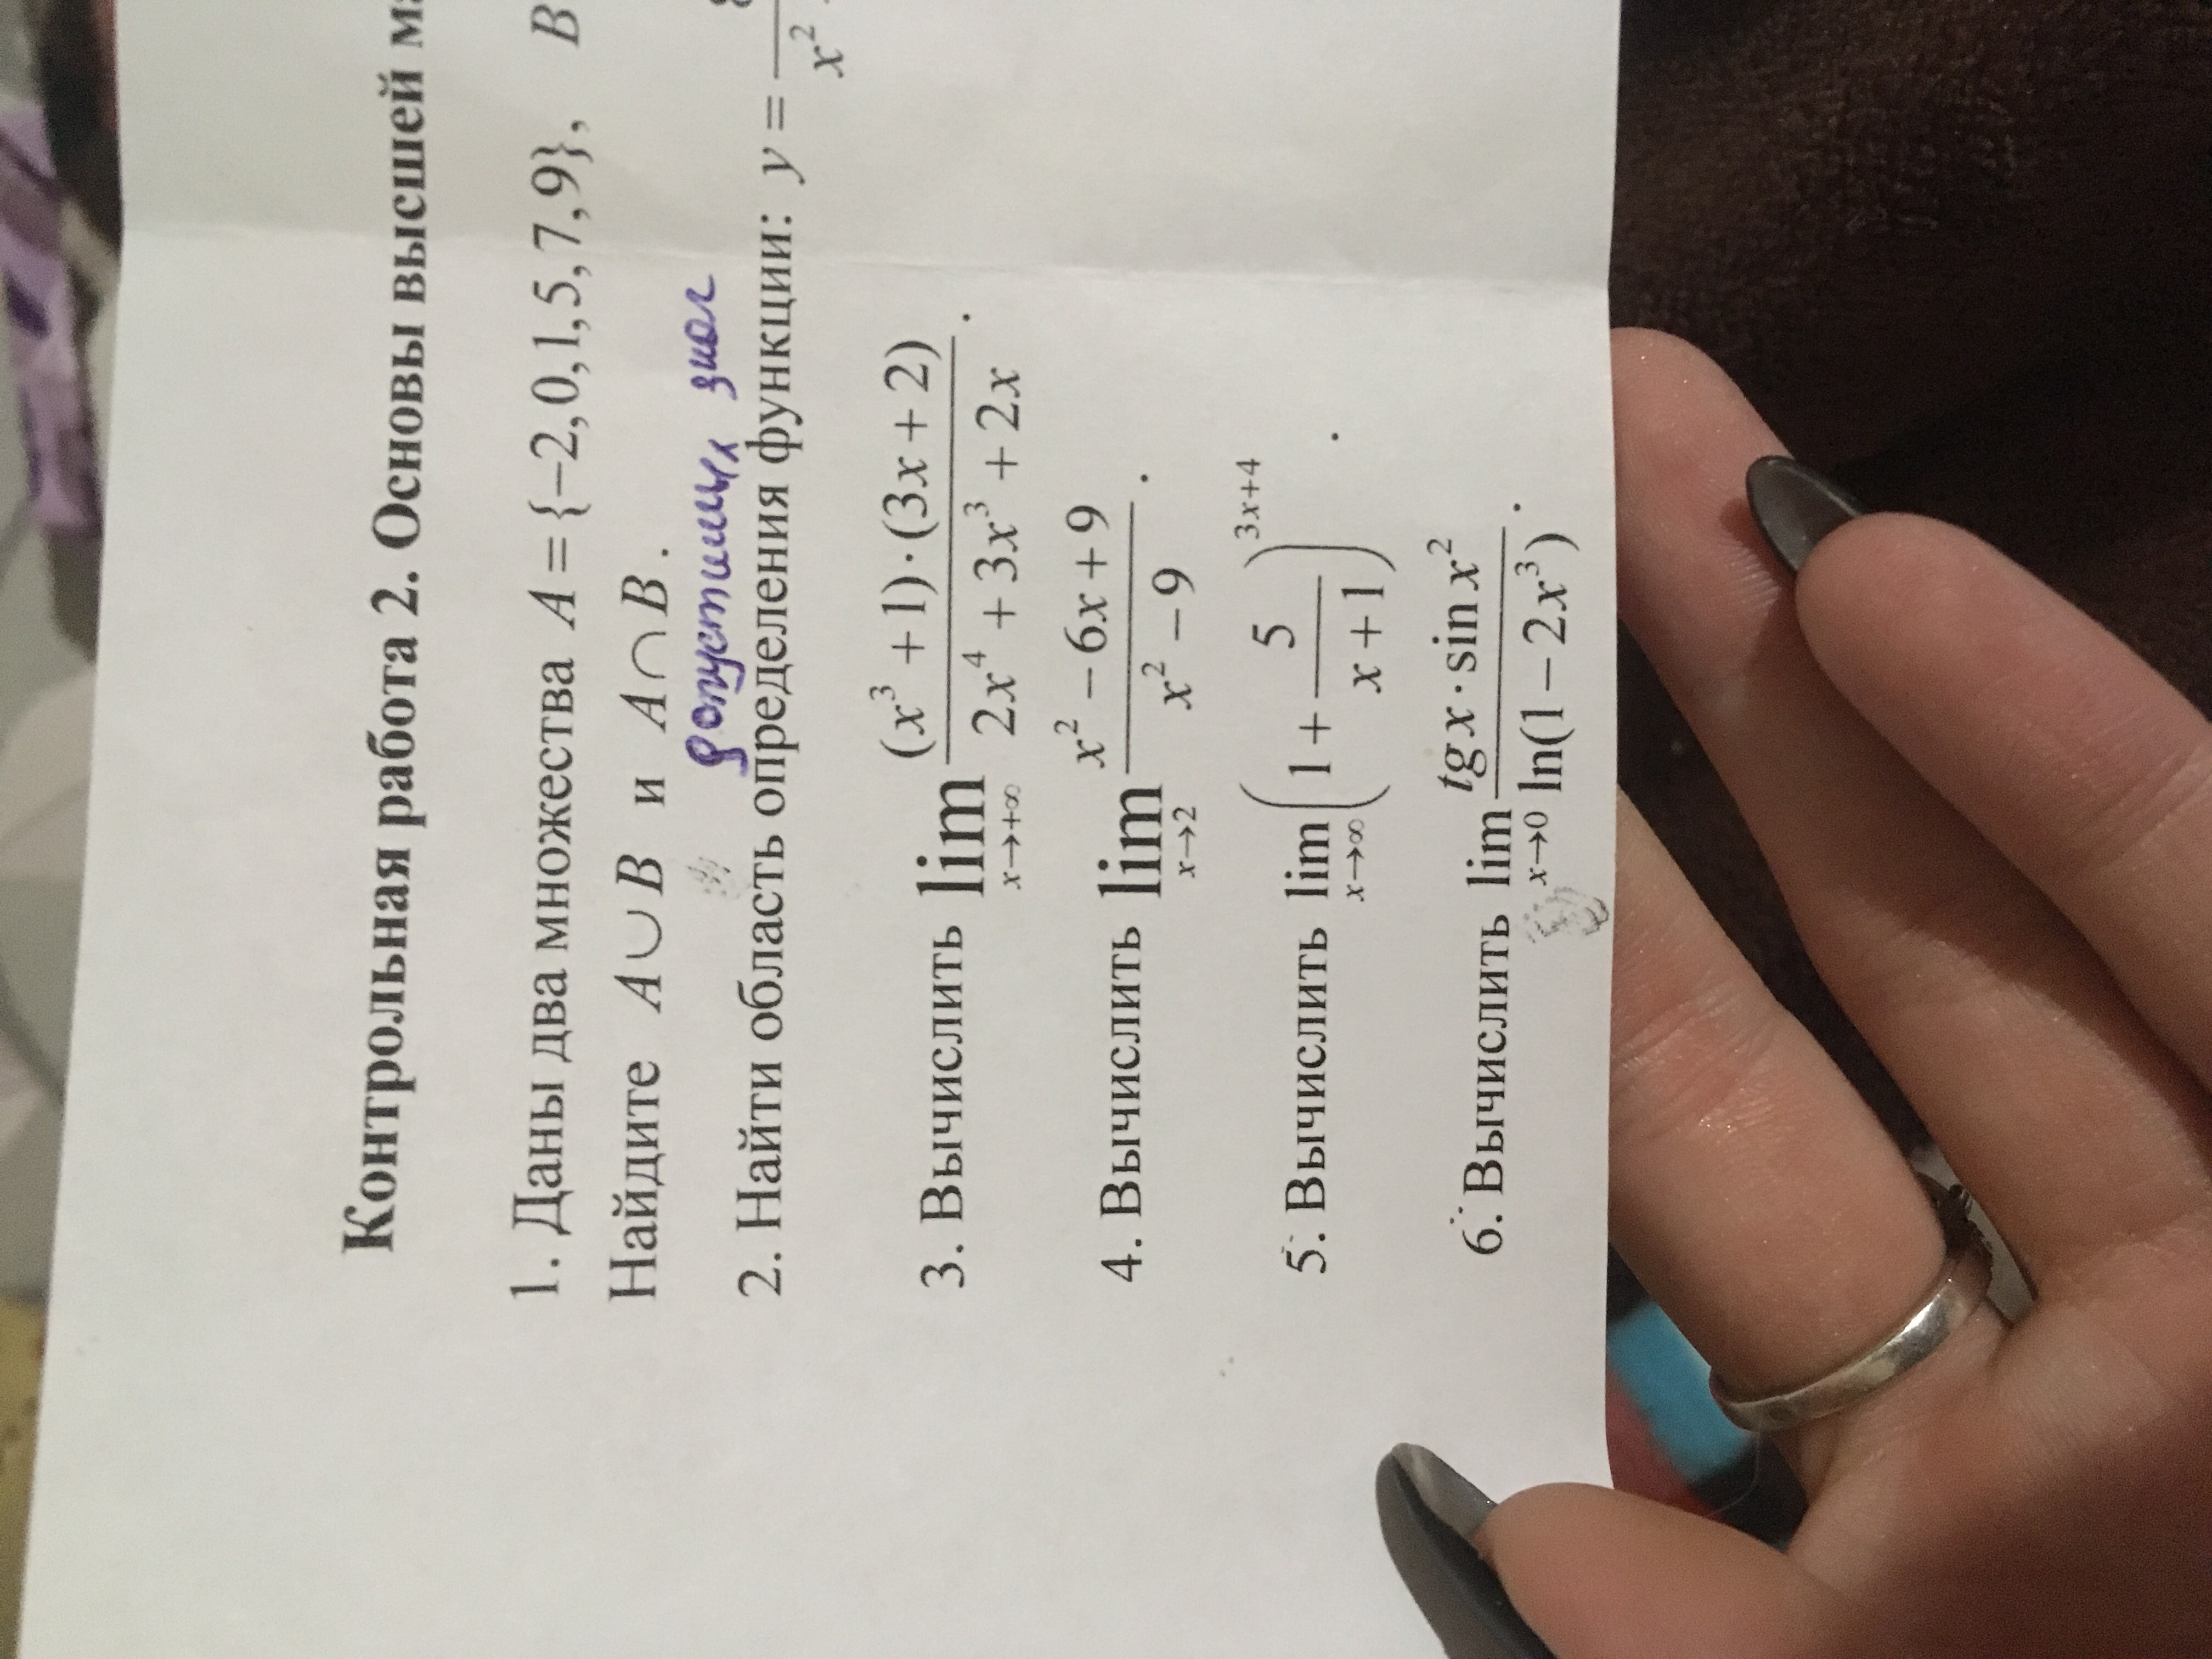 Контрольная работа 2. Основы высшей
1. Даны два множества A = {−2,0,1,5,7,9}, B
Найдите A∪B и A∩B.
допустимых знач
2. Найти область определения функции: y = x²
3. Вычислить lim x→+∞ (x³+1)·(3x+2) / 2x⁴+3x³+2x.
4. Вычислить lim x→2 x²−6x+9 / x²−9.
5. Вычислить lim x→∞ (1+ 5 / x+1)^3x+4.
6. Вычислить lim x→0 tgx·sin x² / ln(1−2x³).